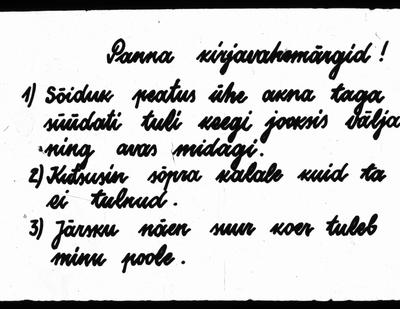 Panna kirjavahemärgid!
1) Sõiduk peatus ühe akna taga
süüdati tuli keegi jooksis välja
ning avas midagi.
2) Kutsusin sõpra kalale kuid ta
ei tulnud.
3) Järsku näen suur koer tuleb
minu poole.